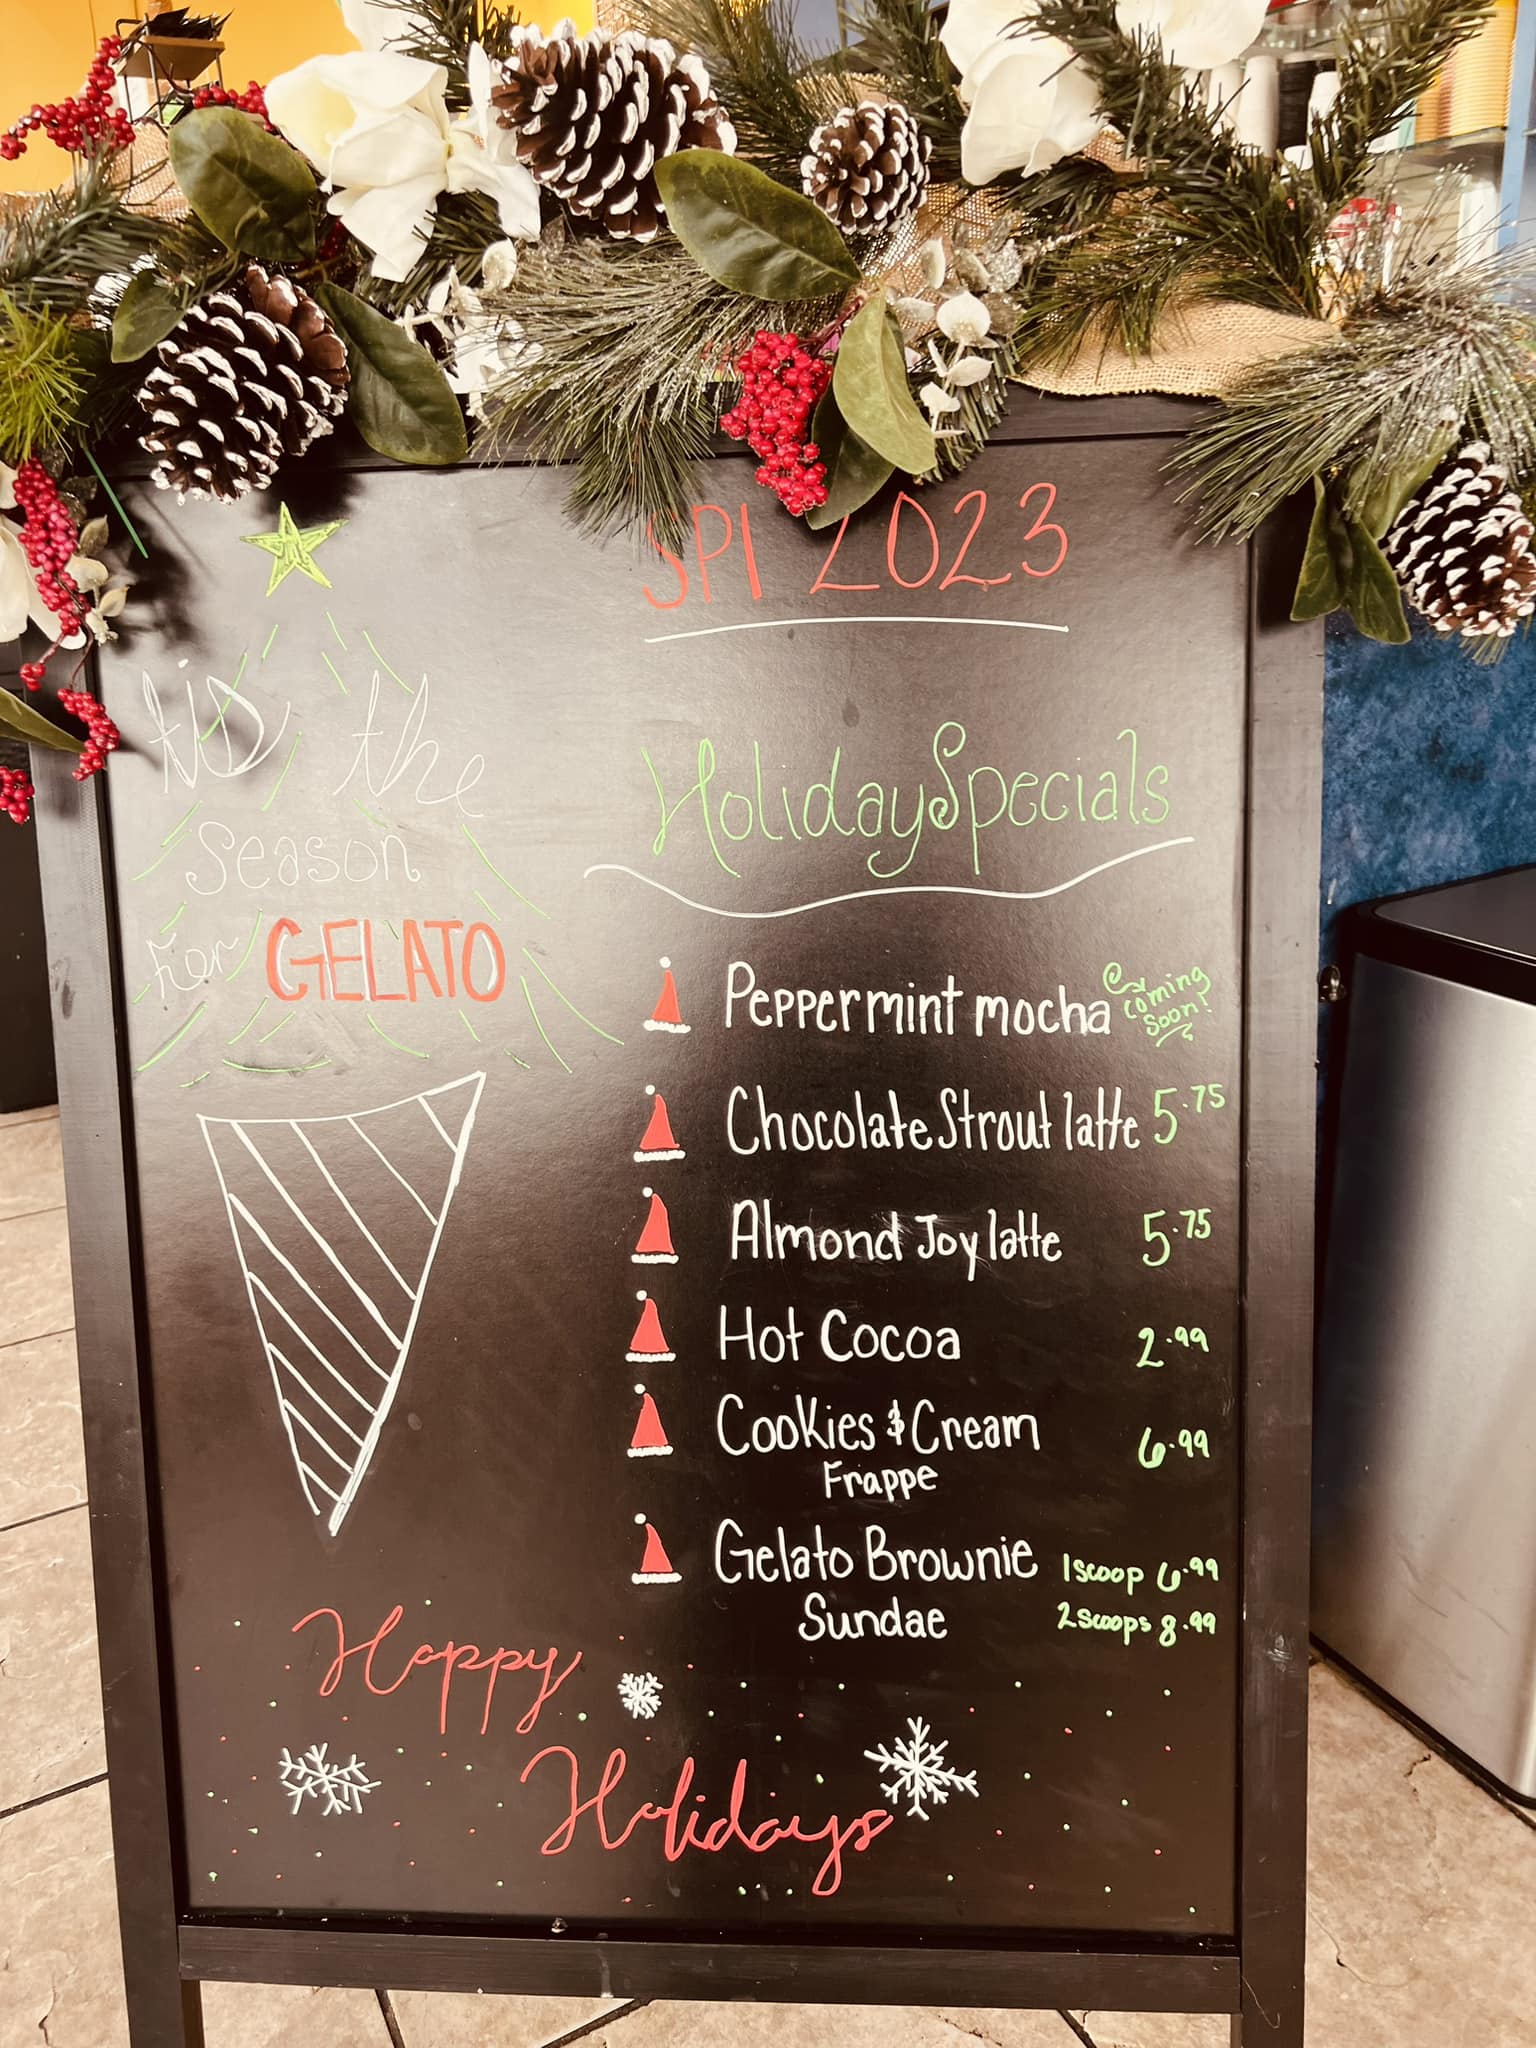 SPI 2023
tis the
Season
For GELATO
Holiday Specials
Peppermint mocha Coming Soon!
Chocolate Strout latte 5.75
Almond Joy latte 5.75
Hot Cocoa 2.99
Cookies & Cream 6.99
Frappe
Gelato Brownie 1 scoop 6.99
Sundae 2 scoops 8.99
Happy
Holidays